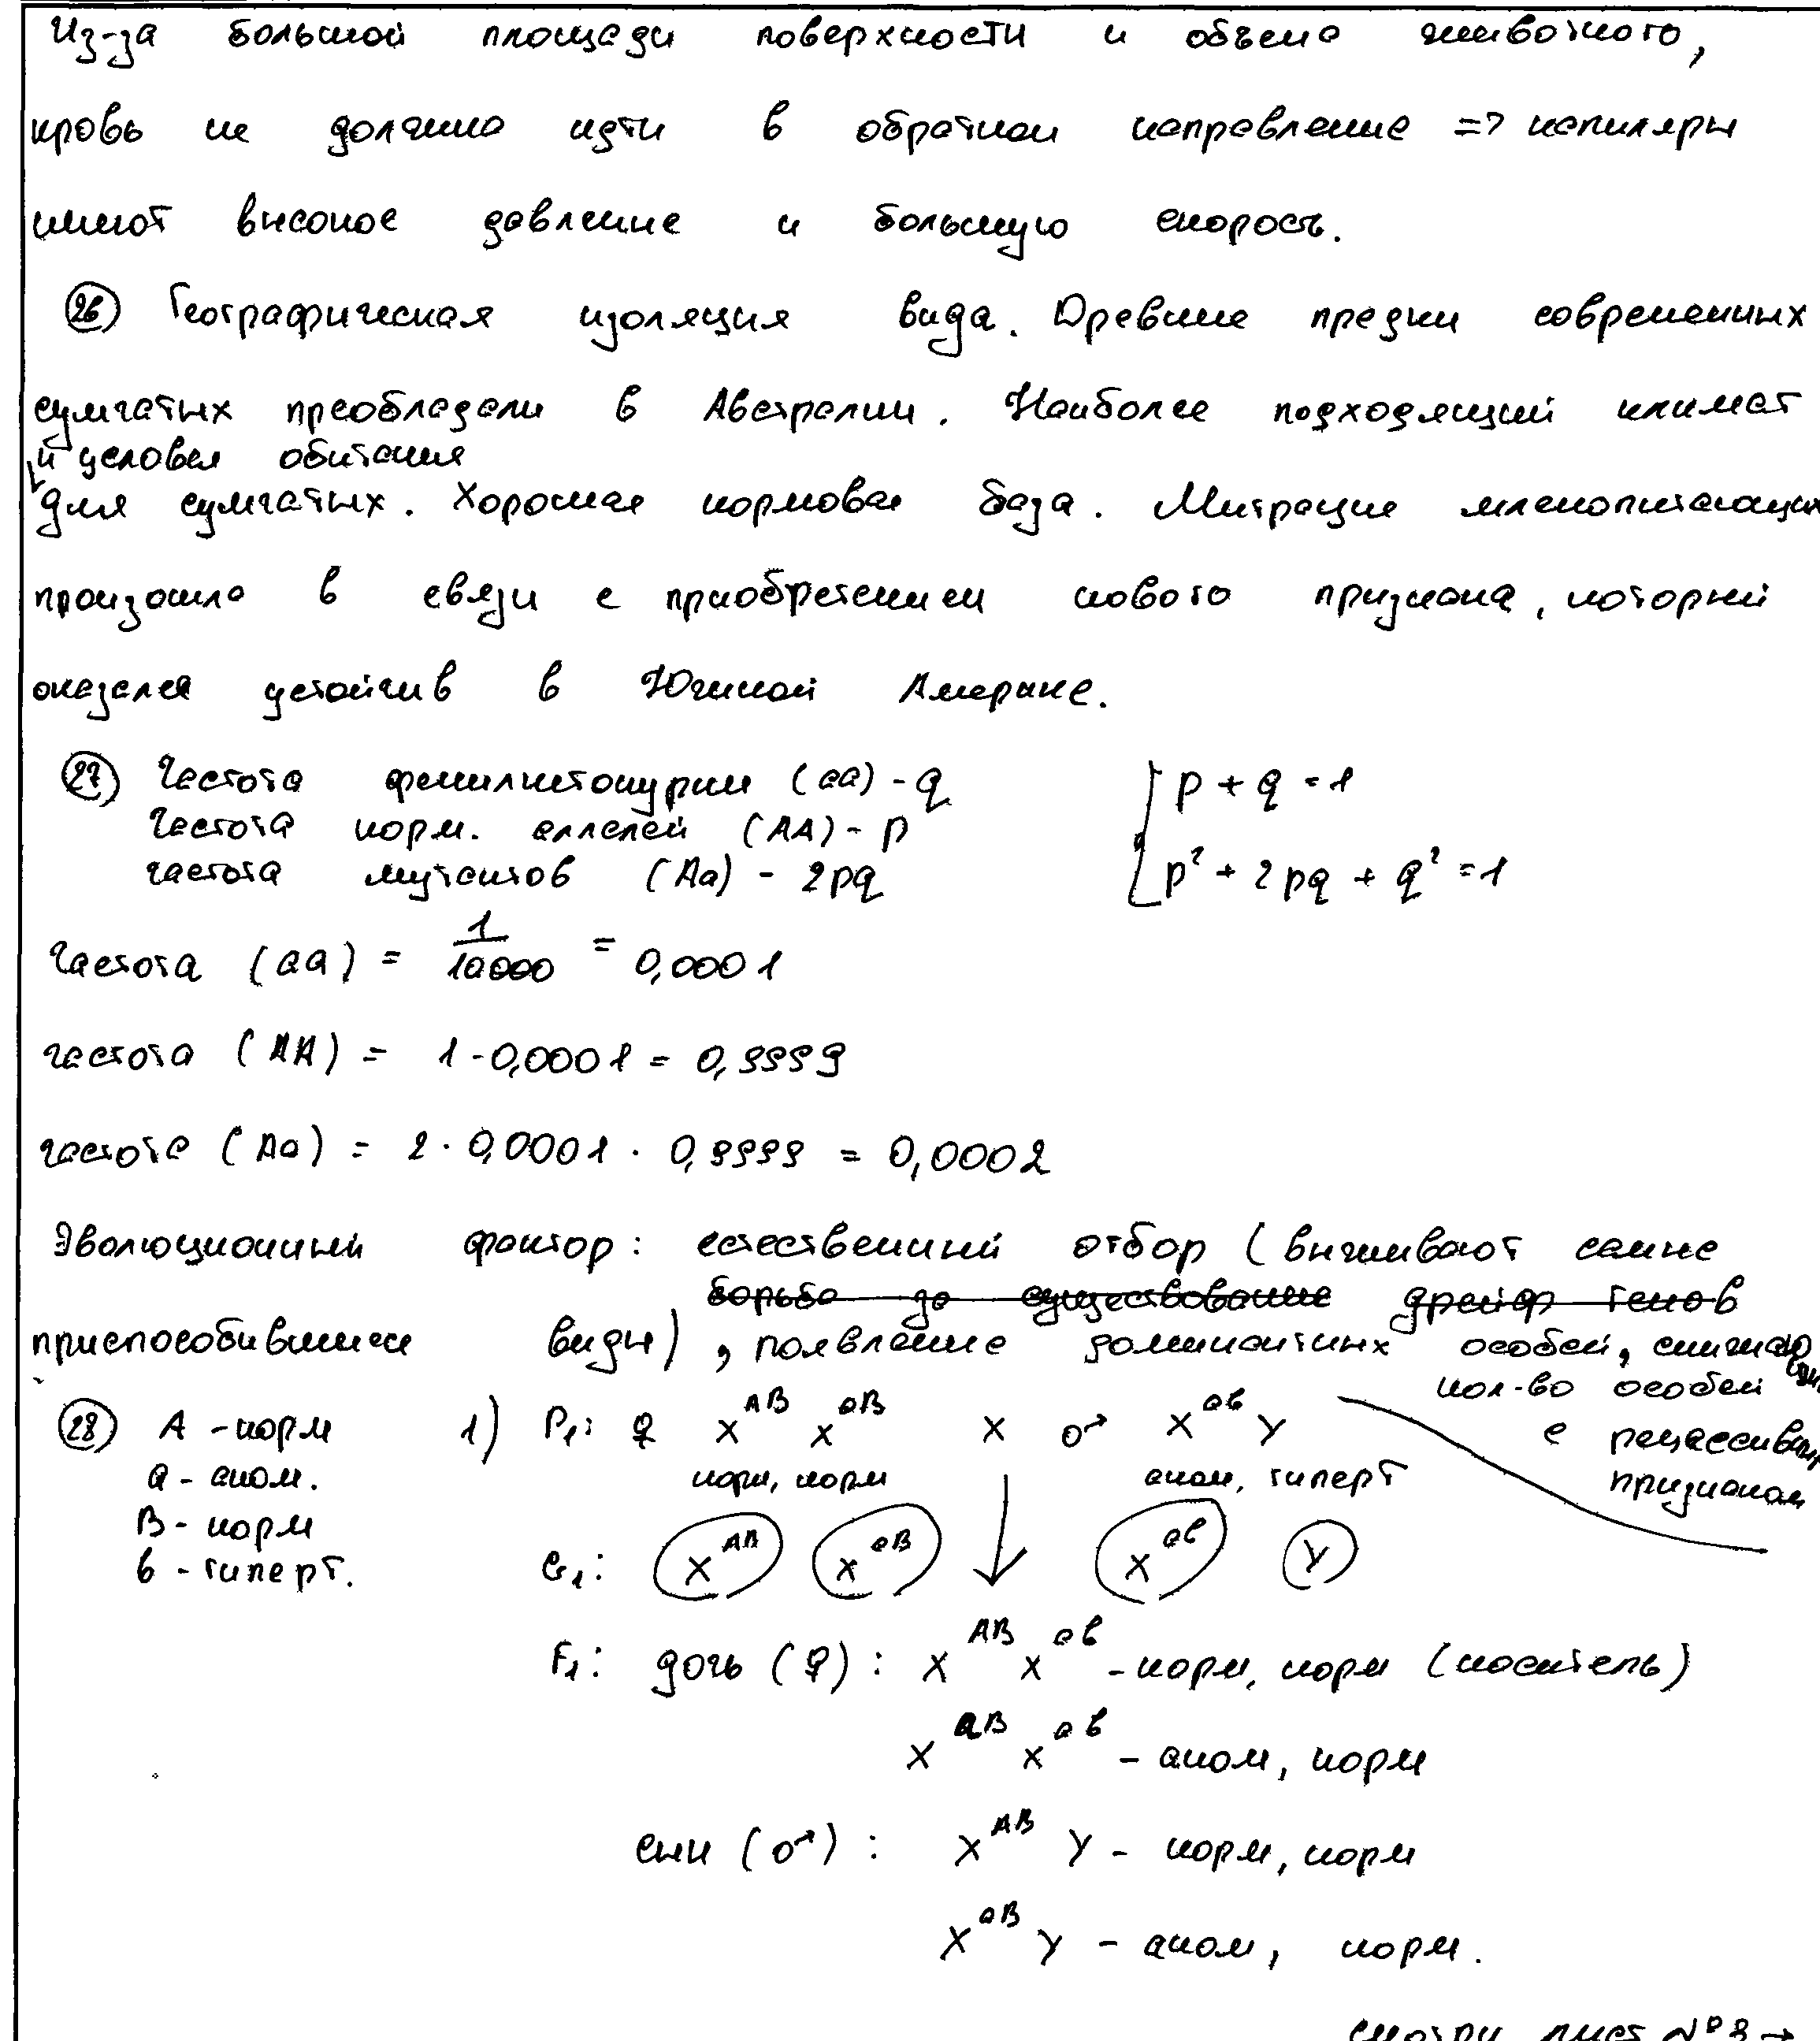 Из-за большой площади поверхности и объема животного,
кровь не должна идти в обратном направление => капиляры
имеют высокое давление и большую скорость.
26) Географическая изоляция вида. Древние предки современных
сумчатых преобладали в Австралии. Наиболее подходящий климат
и условия обитания
для сумчатых. Хорошая кормовая база. Миграция млекопитающих
произошла в связи с приобретением нового признака, который
оказался устойчив в Южной Америке.
27) Частота фенилкетонурии (аа) - q
p + q = 1
Частота норм. аллелей (АА) - p
частота мутантов (Аа) - 2pq
p² + 2pq + q² = 1
Частота (аа) = 1/10000 = 0,0001
частота (АА) = 1 - 0,0001 = 0,9999
частота (Аа) = 2 · 0,0001 · 0,9999 = 0,0002
Эволюционный фактор: естественный отбор (выживают самые
борьба за существование дрейф генов
приспособившиеся виды), появление доминантных особей,
кол-во особей
с рецессивным
признаком
28) А - норм
а - аном.
В - норм
в - гиперт.
1) P₁: ♀ X^АВ X^аВ X ♂ X^ав Y
норм, норм аном, гиперт
G₁: X^АВ X^аВ X^ав Y
F₁: дочь (♀): X^АВ X^ав - норм, норм (носитель)
X^аВ X^ав - аном, норм
сын (♂): X^АВ Y - норм, норм
X^аВ Y - аном, норм.
смотри лист №